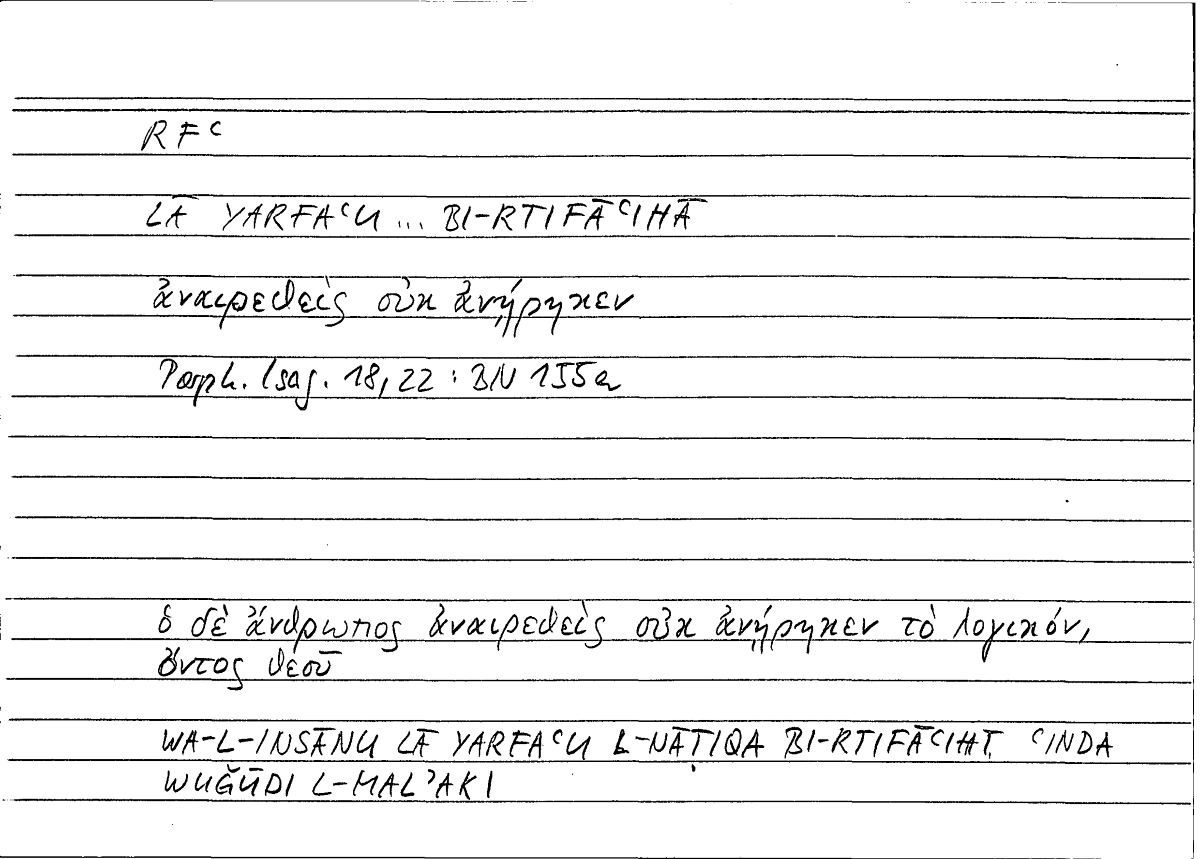 RFʿ
LĀ YARFAʿU ... BI-RTIFĀʿIHĀ
ἀναιρεθεὶς οὐκ ἀνῄρηκεν
Porph. Isag. 18,22 : BN 155a
ὁ δὲ ἄνθρωπος ἀναιρεθεὶς οὐκ ἀνῄρηκεν τὸ λογικόν,
ὄντος θεοῦ
WA-L-INSĀNU LĀ YARFAʿU L-NĀṬIQA ʿINDA
WUǦŪDI L-MALʾAKI